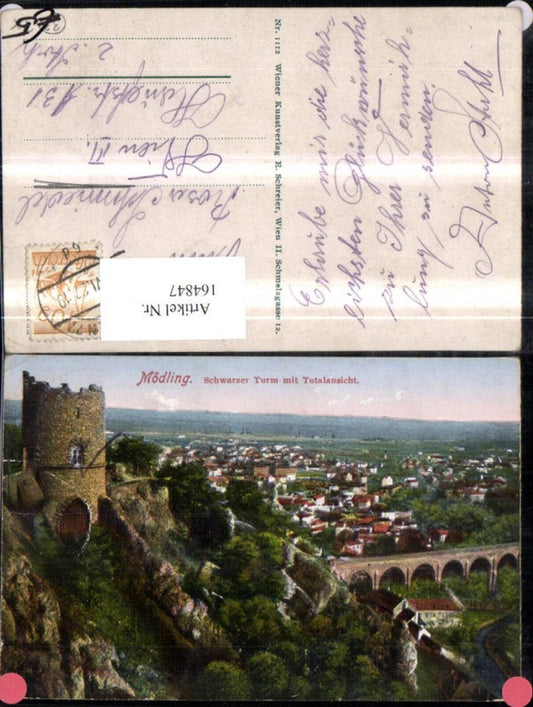 65
Erlaube mir die herz-
lichsten Glückwünsche
zu Ihrer Vermäh-
lung zu senden
Anton
Nr. 1112 Wiener Kunstverlag E. Schreier, Wien II. Schmelzgasse 12.
Rosa Schmiedel
Wien
2. Stock
Artikel Nr.
164847
Mödling. Schwarzer Turm mit Totalansicht.